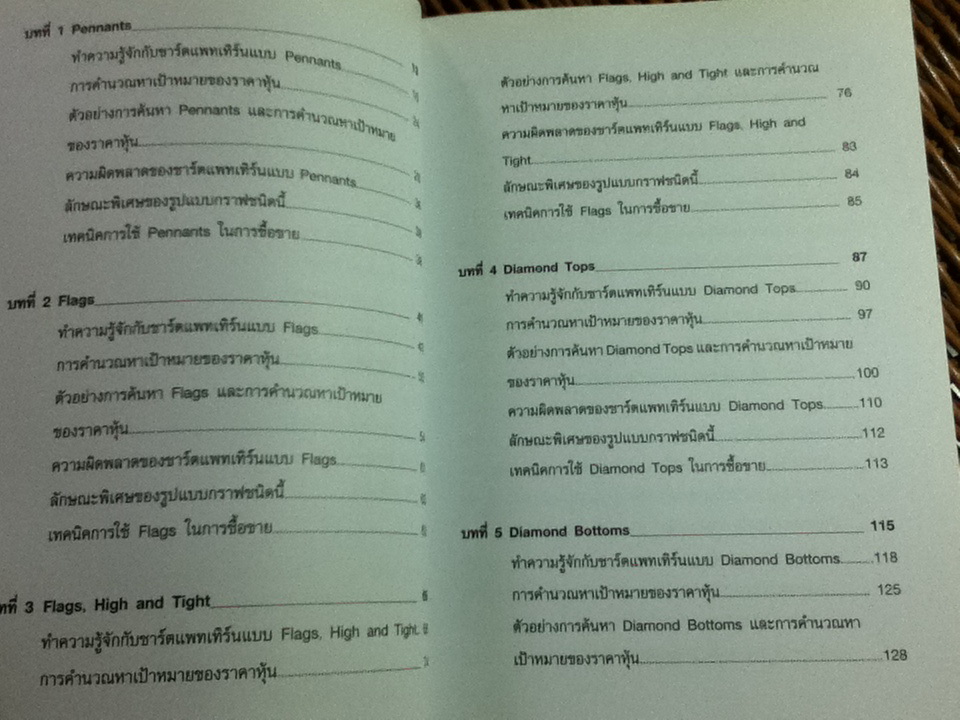 บทที่ 1 Pennants
ทำความรู้จักกับชาร์ตแพทเทิร์นแบบ Pennants
การคำนวณหาเป้าหมายของราคาหุ้น
ตัวอย่างการค้นหา Pennants และการคำนวณหาเป้าหมาย
ของราคาหุ้น
ความผิดพลาดของชาร์ตแพทเทิร์นแบบ Pennants
ลักษณะพิเศษของรูปแบบกราฟชนิดนี้
เทคนิคการใช้ Pennants ในการซื้อขาย
บทที่ 2 Flags
ทำความรู้จักกับชาร์ตแพทเทิร์นแบบ Flags
การคำนวณหาเป้าหมายของราคาหุ้น
ตัวอย่างการค้นหา Flags และการคำนวณหาเป้าหมาย
ของราคาหุ้น
ความผิดพลาดของชาร์ตแพทเทิร์นแบบ Flags
ลักษณะพิเศษของรูปแบบกราฟชนิดนี้
เทคนิคการใช้ Flags ในการซื้อขาย
ทที่ 3 Flags, High and Tight
ทำความรู้จักกับชาร์ตแพทเทิร์นแบบ Flags, High and Tight
การคำนวณหาเป้าหมายของราคาหุ้น
ตัวอย่างการค้นหา Flags, High and Tight และการคำนวณ
หาเป้าหมายของราคาหุ้น 76
ความผิดพลาดของชาร์ตแพทเทิร์นแบบ Flags, High and
Tight 83
ลักษณะพิเศษของรูปแบบกราฟชนิดนี้ 84
เทคนิคการใช้ Flags ในการซื้อขาย 85
บทที่ 4 Diamond Tops 87
ทำความรู้จักกับชาร์ตแพทเทิร์นแบบ Diamond Tops 90
การคำนวณหาเป้าหมายของราคาหุ้น 97
ตัวอย่างการค้นหา Diamond Tops และการคำนวณหาเป้าหมาย
ของราคาหุ้น 100
ความผิดพลาดของชาร์ตแพทเทิร์นแบบ Diamond Tops 110
ลักษณะพิเศษของรูปแบบกราฟชนิดนี้ 112
เทคนิคการใช้ Diamond Tops ในการซื้อขาย 113
บทที่ 5 Diamond Bottoms 115
ทำความรู้จักกับชาร์ตแพทเทิร์นแบบ Diamond Bottoms 118
การคำนวณหาเป้าหมายของราคาหุ้น 125
ตัวอย่างการค้นหา Diamond Bottoms และการคำนวณหา
เป้าหมายของราคาหุ้น 128